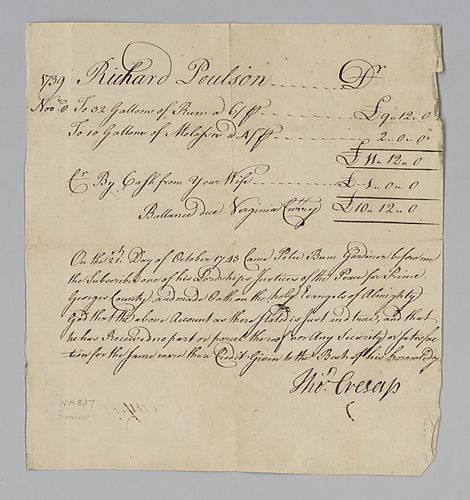 1739 Richard Poulson Dr
Novr 8 To 32 Gallons of Rum a 6/ £9 12 0
To 10 Gallons of Molasses a 4/ 2 0 0
£11 12 0
Cr By Cash from Your Wife £1 0 0
Ballance due Virginia Curry £10 12 0
On the Day of October 1743 Came Peter Bum Gardiner before me
the Subscriber one of his Lordships Justices of the Peace for Prince
Georges County and made Oath on the holy Evangels of Almighty
God that the above Account as there stated is just and true, and that
he has Received no part or parcel thereof nor Any Security or Satisfac
tion for the same more than Credit Given to the Best of his knowledge
Thos. Cresap
NA 837